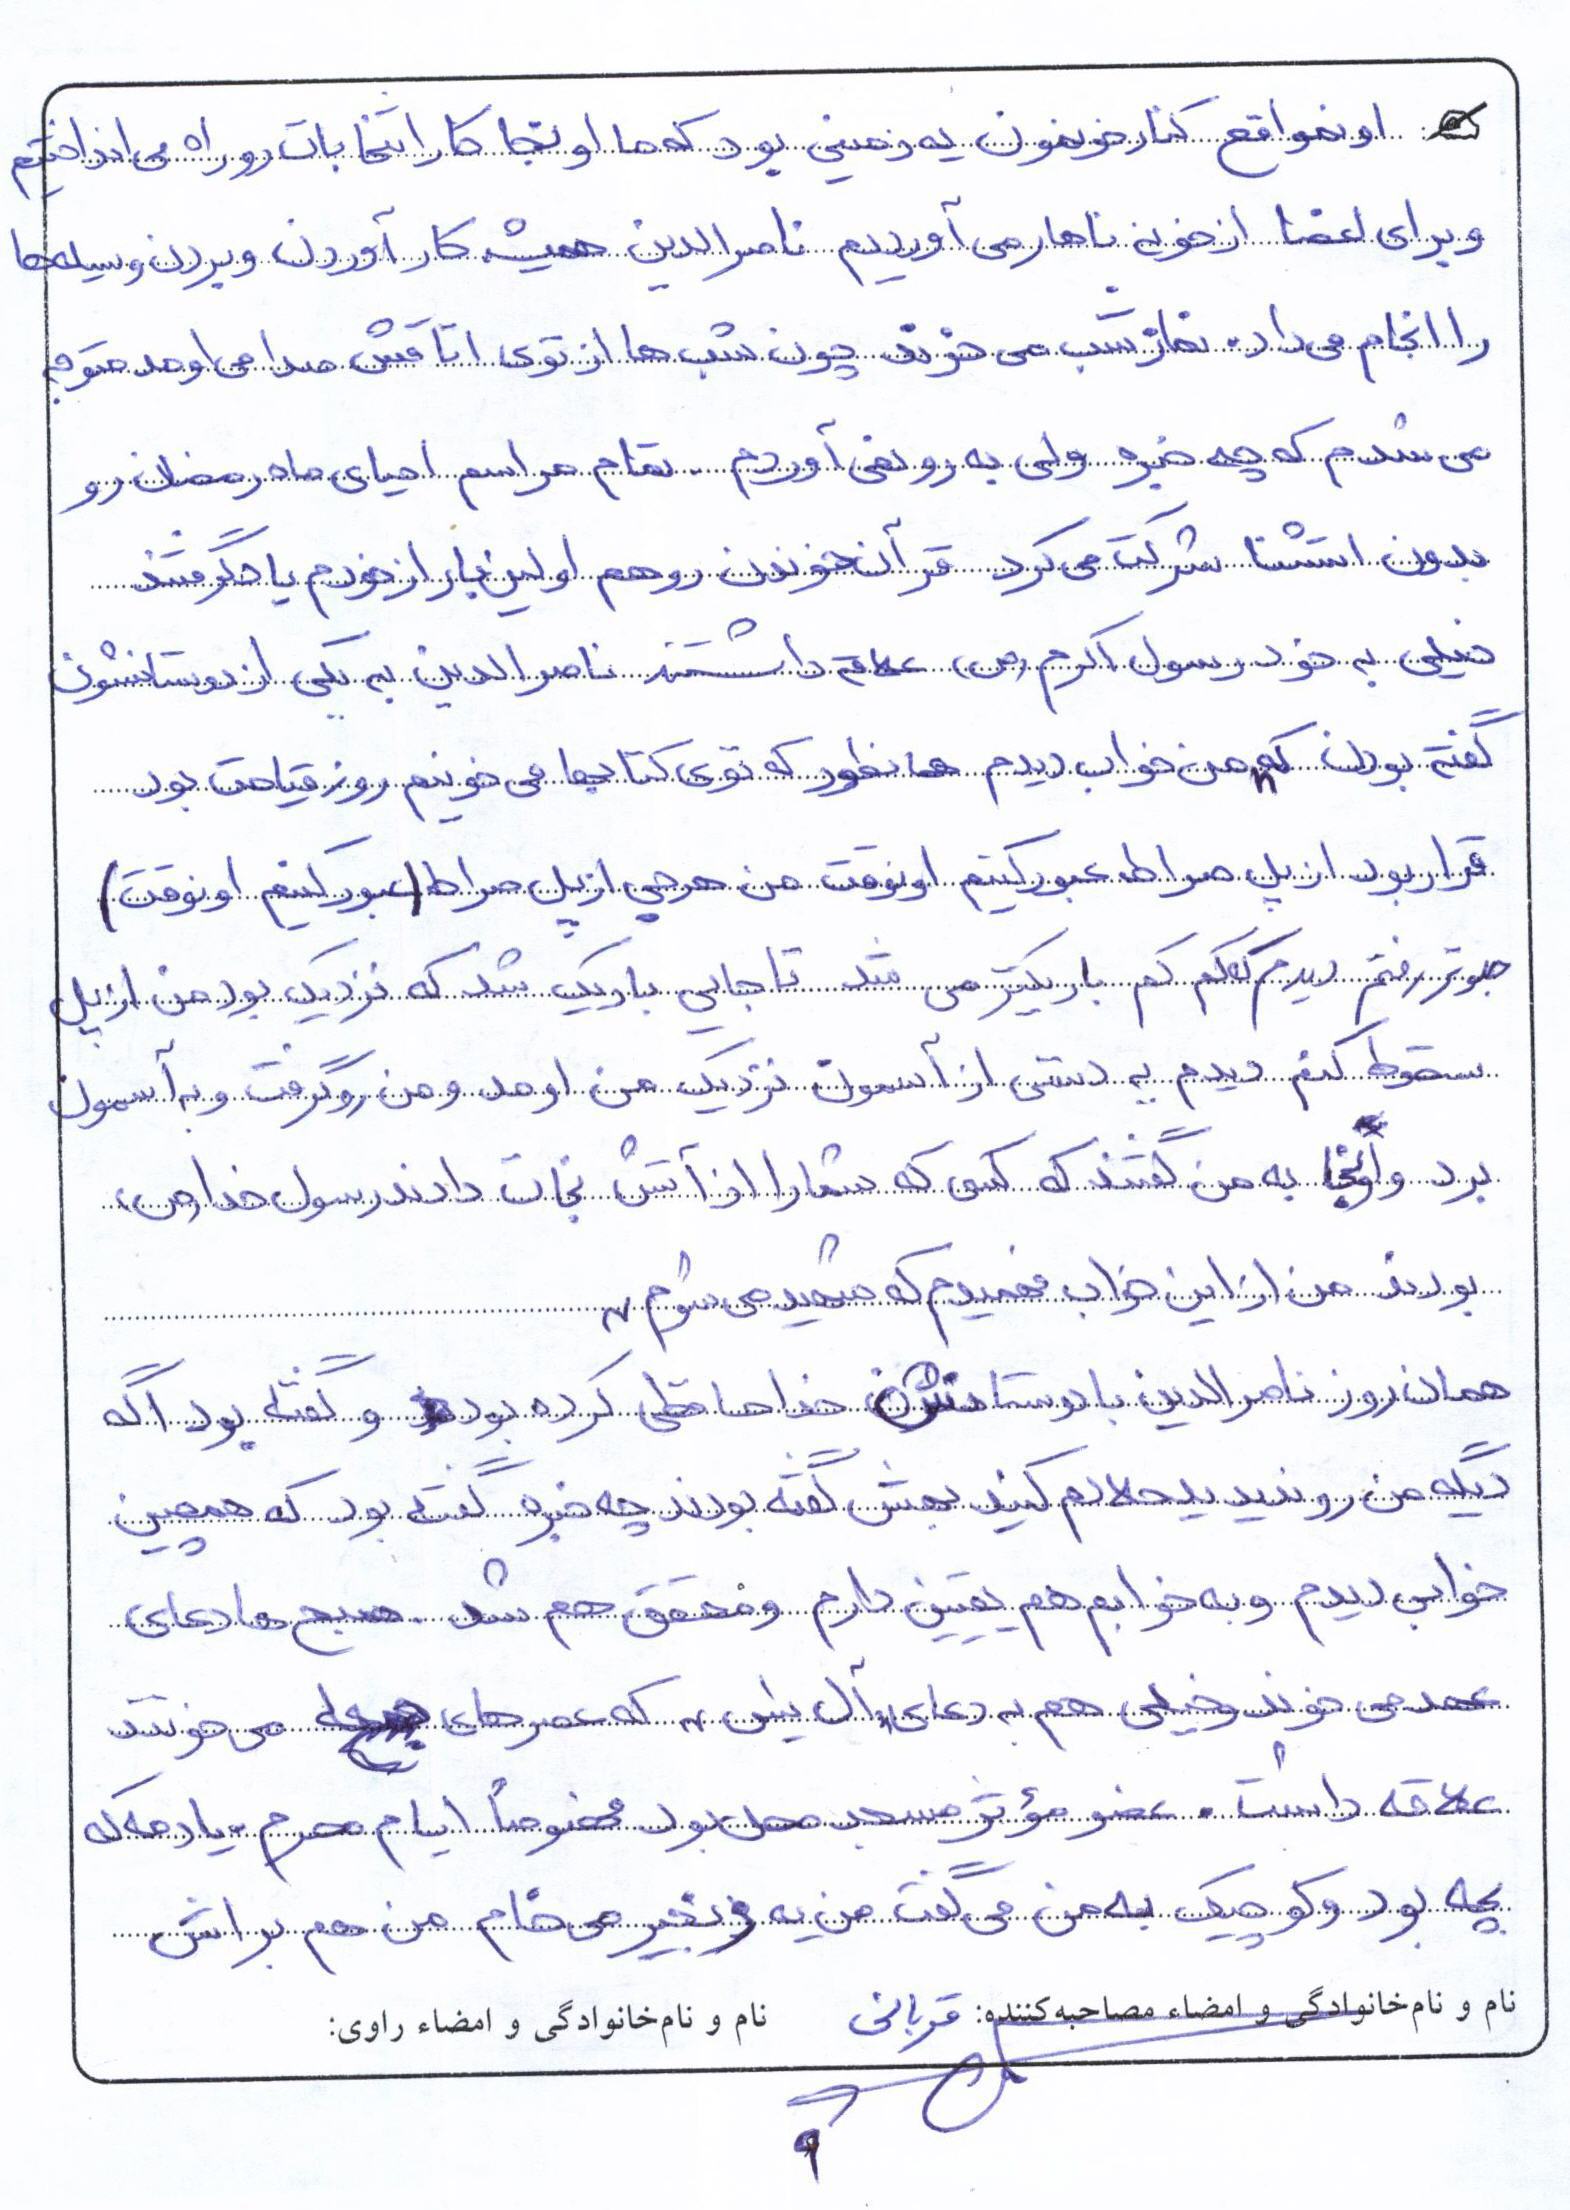 اونمواقع کنار خونمون یه زمینی بود که ما اونجا کار انتخابات رو راه می انداختیم
و برای اعضا از خونه ناهار می آوردیم ناصرالدین همیشه کار آوردن و بردن وسیله ها
را انجام می داد. نماز شب می خوند چون شب ها از توی اتاقش صدا می اومد متوجه
می شدم که چه خبره ولی به رو نمی آوردم. تمام مراسم احیای ماه رمضان رو
بدون استثنا شرکت می کرد قرآن خوندن رو هم اولین بار از خودم یاد گرفتند
خیلی به خود رسول اکرم (ص) علاقه داشتند ناصرالدین به یکی از دوستانشون
گفته بودن که "من خواب دیدم همانطور که توی کتابها می خونیم روز قیامت بود
قرار بود از پل صراط عبور کنیم اونوقت من هرچی از پل صراط (عبور کنیم اونوقت)
جلوتر رفتم دیدم که کم کم باریکتر می شد تا جایی باریک شد که نزدیک بود من از پل
سقوط کنم دیدم یه دستی از آسمون نزدیک من اومد و من رو گرفت و به آسمون
برد و اونجا به من گفتند که کسی که شما را از آتش نجات دادند رسول خدا (ص)
بودند من از این خواب فهمیدم که شهید می شوم"
همان روز ناصرالدین با دوستانشون خداحافظی کرده بود و گفته بود اگه
دیگه من رو ندیدید حلالم کنید بهش گفته بودند چه خبره گفته بود که همچین
خوابی دیدم و به خوابم هم یقین دارم و محقق هم شد. صبح ها دعای
عهد می خوند و خیلی هم به دعای "آل یس" که عصرهای جمعه می خونند
علاقه داشت. عضو مؤثر مسجد محل بود مخصوصاً ایام محرم. یادمه که
بچه بود و کوچیک به من می گفت من یه زنجیر می خام من هم براش
نام و نام‌خانوادگی و امضاء مصاحبه‌کننده: قربانی نام و نام‌خانوادگی و امضاء راوی:
۹